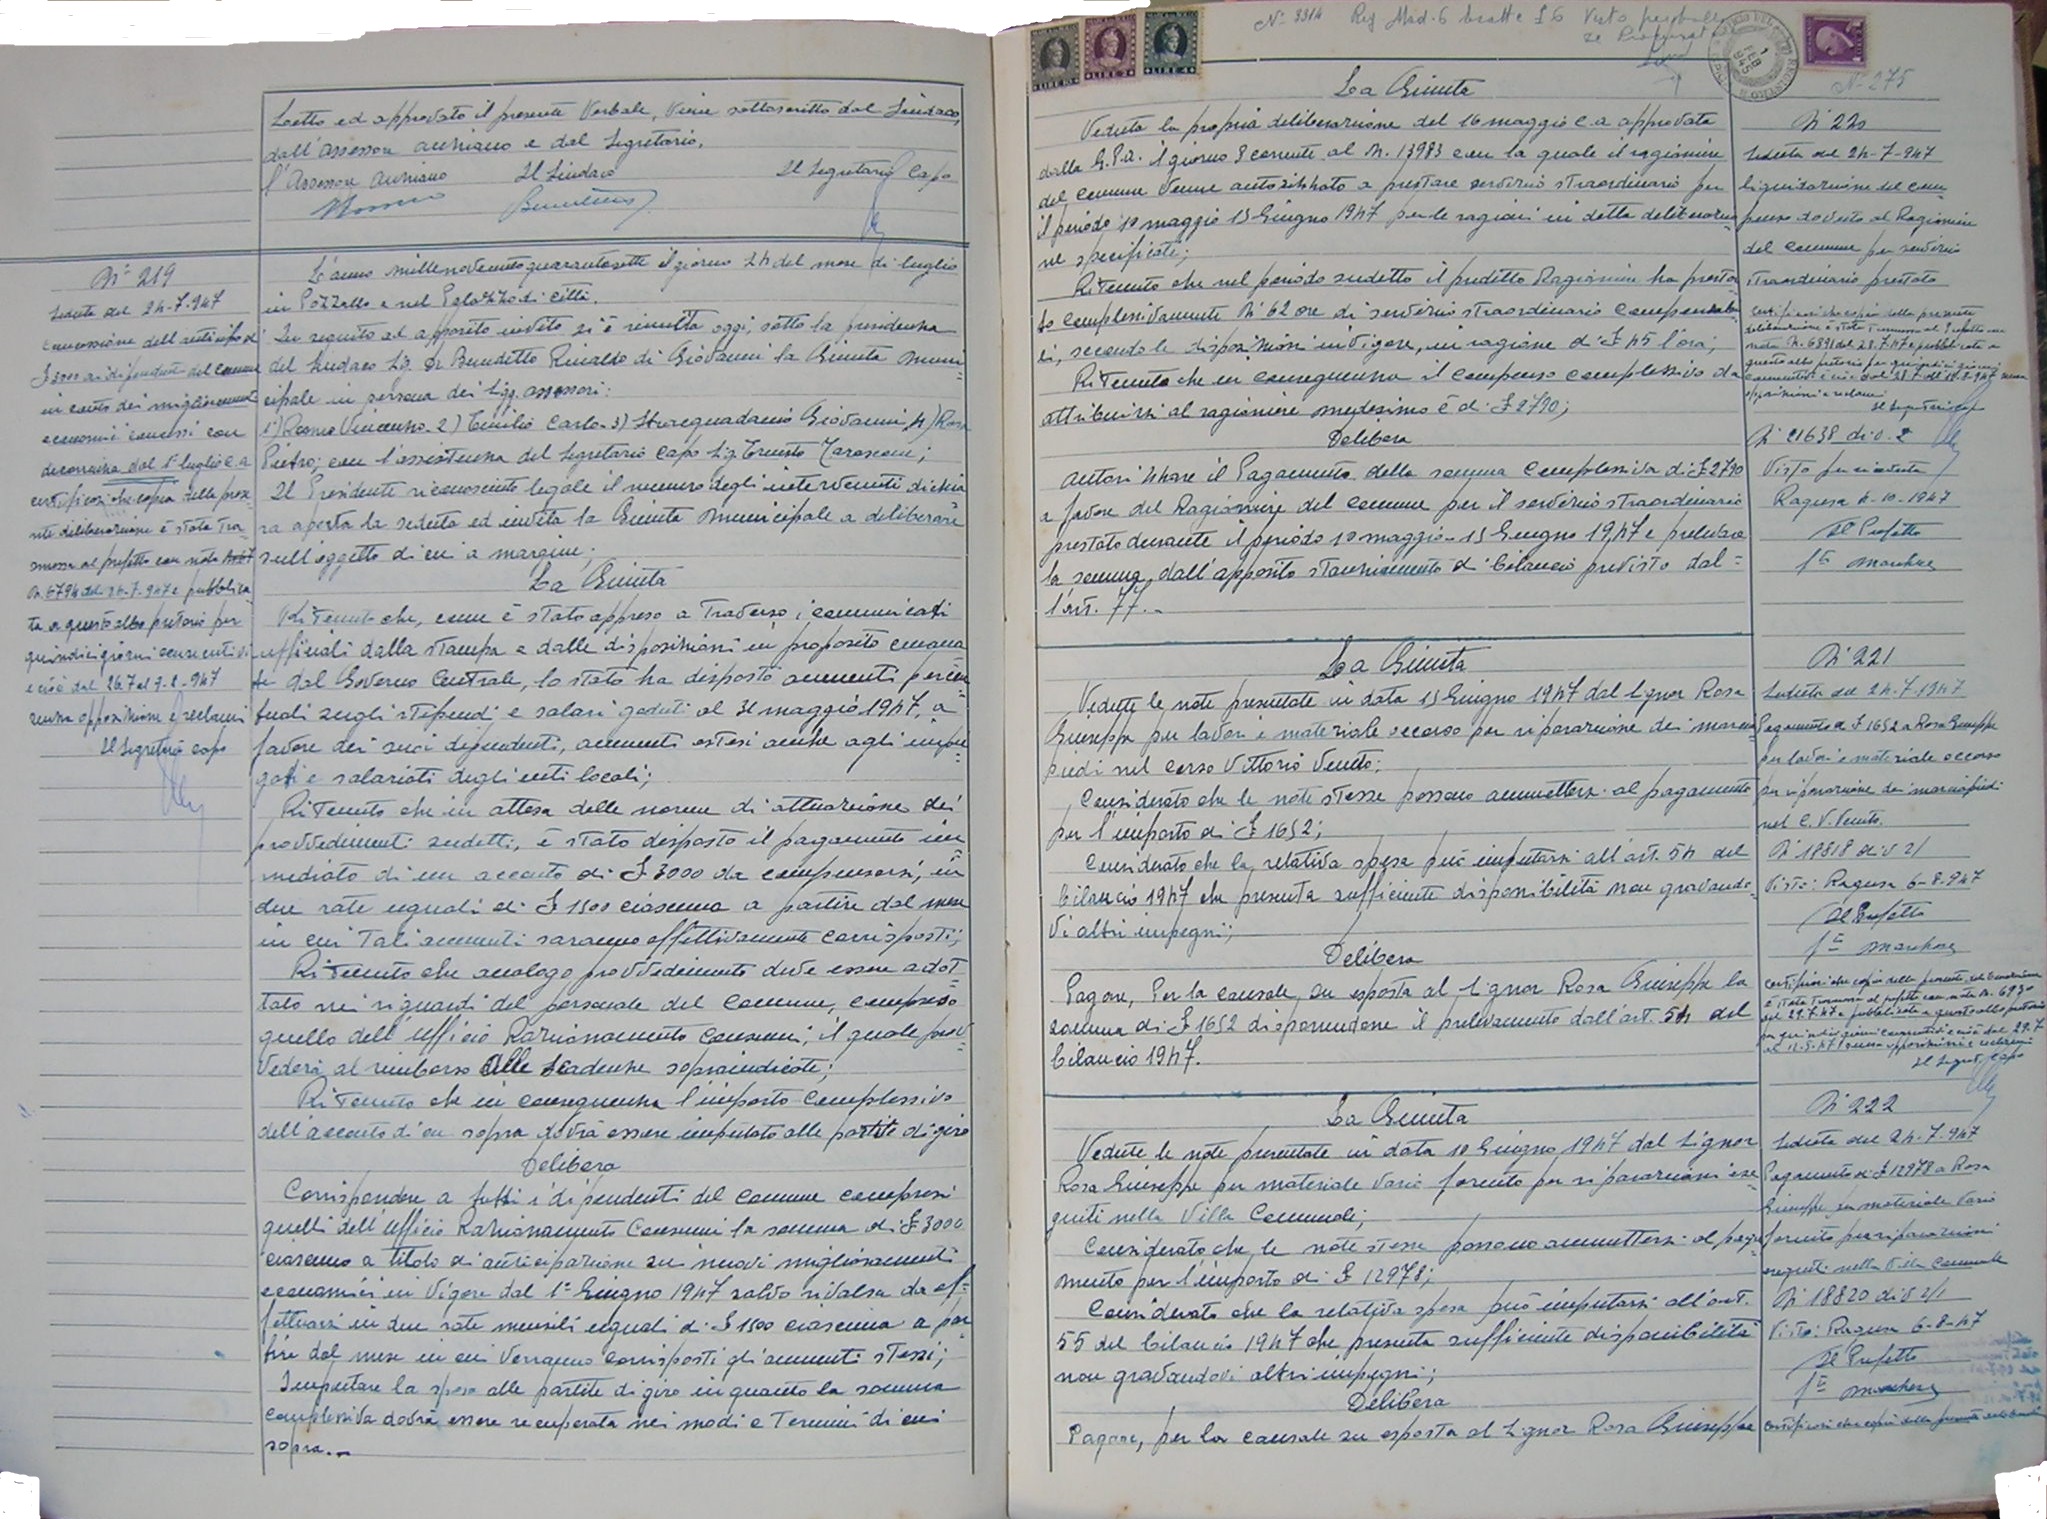 Letto ed approvato il presente Verbale, Viene sottoscritto dal Sindaco,
dall'assessore anziano e dal Segretario.
l'assessore anziano Il Sindaco Il Segretario Capo
N° 219
Seduta del 24-7-947
Concessione dell'anticipo di
£ 3000 ai dipendenti del comune
in conto dei miglioramenti
economici concessi con
decorrenza dal 1° luglio c.a
certificasi che copia della prese
nte deliberazione è stata tra
smessa al prefetto con nota
N. 6794 del 24-7-947 e pubblica
ta a questo albo pretorio per
quindici giorni consecutivi
e cioè dal 26.7 al 9-8-947
senza opposizione e reclami
Il Segretario capo
L'anno millenovecentoquarantasette il giorno 24 del mese di luglio
in Pozzallo e nel Palazzo di città.
In seguito ad apposito invito si è riunita oggi, sotto la presidenza
del Sindaco Sig. Dr Benedetto Rinaldo di Giovanni la Giunta Muni
cipale in persona dei Sigg. assessori:
1) Vincenzo. 2) Emilio Carlo. 3) Giovanni, 4) Rosa
Pietro; con l'assistenza del Segretario Capo Sig. Ernesto
Il Presidente riconosciuto legale il numero degli intervenuti dichia
ra aperta la seduta ed invita la Giunta Municipale a deliberare
sull'oggetto di cui a margine;
La Giunta
Ritenuto che, come è stato appreso a traverso i comunicati
ufficiali dalla stampa e dalle disposizioni in proposito emana
te dal Governo Centrale, lo stato ha disposto aumenti percen
tuali sugli stipendi e salari goduti al 31 maggio 1947, a
favore dei suoi dipendenti, aumenti estesi anche agli impie
gati e salariati degli enti locali;
Ritenuto che in attesa delle norme di attuazione dei
provvedimenti sudetti, è stato disposto il pagamento im
mediato di un acconto di £ 3000 da compensarsi, in
due rate uguali di £ 1500 ciascuna a partire dal mese
in cui tali aumenti saranno effettivamente corrisposti;
Ritenuto che analogo provvedimento deve essere adot
tato nei riguardi del personale del Comune, compreso
quello dell'ufficio Razionamento Consumi, il quale prov
vederà al rimborso alle scadenze sopraindicate;
Ritenuto che in conseguenza l'importo complessivo
dell'acconto di cui sopra dovrà essere imputato alle partite di giro
Delibera
Corrispondere a tutti i dipendenti del comune compresi
quelli dell'ufficio Razionamento Consumi la somma di £ 3000
ciascuno a titolo di anticipazione sui nuovi miglioramenti
economici in vigore dal 1° Giugno 1947 salvo rivalsa da ef=
fettuarsi in due rate mensili uguali di £ 1500 ciascuna a par
tire dal mese in cui verranno corrisposti gli aumenti stessi;
Imputare la spesa alle partite di giro in quanto la somma
complessiva dovrà essere recuperata nei modi e termini di cui
sopra.
LIRE 2
LIRE 4
N° 3314 Reg Mod. 6 £ 6 Visto
N° 275
La Giunta
Veduta la propria deliberazione del 16 maggio c.a approvata
dalla G.P.A. il giorno 8 corrente al N. 13983 con la quale il ragioniere
del comune venne autorizzato a prestare servizio straordinario per
il periodo 10 maggio 15 Giugno 1947 per le ragioni in detta deliberazio
ne specificate;
Ritenuto che nel periodo sudetto il predetto Ragioniere ha presta
to complessivamente N° 62 ore di servizio straordinario compensabi
li, secondo le disposizioni in vigore, in ragione di £ 45 l'ora;
Ritenuto che in conseguenza il compenso complessivo da
attribuirsi al ragioniere medesimo è di £ 2790;
Delibera
autorizzare il Pagamento della somma complessiva di £ 2790
a favore del Ragioniere del comune per il servizio straordinario
prestato durante il periodo 10 maggio - 15 Giugno 1947 e prelevare
la somma dall'apposito stanziamento di bilancio previsto dal=
l'art. 77. -
N° 220
Seduta del 24-7-947
liquidazione del com
penso dovuto al Ragioniere
del comune per servizio
straordinario prestato
certificasi che copia della presente
deliberazione è stata trasmessa al Prefetto con
nota N. 6891 del 28.7.47 e pubblicata a
questo albo pretorio per quindici giorni
consecutivi e cioè dal 28.7 al senza
opposizioni e reclami
Il Segretario Capo
N° 21638 div. 2
Visto
Ragusa 4-10-1947
Il Prefetto
La Giunta
Vedute le note presentate in data 15 Giugno 1947 dal Signor Rosa
Giuseppe per lavori e materiale occorso per riparazione dei marcia
piedi nel corso Vittorio Veneto;
Considerato che le note stesse possono ammettersi al pagamento
per l'importo di £ 1652;
Considerato che la relativa spesa può imputarsi all'art. 54 del
bilancio 1947 che presenta sufficiente disponibilità non gravando
vi altri impegni;
Delibera
Pagare, per la causale su esposta al Signor Rosa Giuseppe la
somma di £ 1652 disponendone il prelevamento dall'art. 54 del
bilancio 1947.
N° 221
Seduta del 24-7-1947
Pagamento di £ 1652 a Rosa Giuseppe
per lavori e materiale occorso
per riparazione dei marciapiedi
nel C. V. Veneto.
N° 18818 div 2/1
Visto: Ragusa 6-8-947
Il Prefetto
certificasi che copia della presente deliberazione
è stata trasmessa al prefetto con nota N. 6930
del 29.7.47 e pubblicata a questo albo pretorio
per quindici giorni consecutivi e cioè dal 29.7
al senza opposizioni e reclami
Il Segret. Capo
La Giunta
Vedute le note presentate in data 10 Giugno 1947 dal Signor
Rosa Giuseppe per materiale vario fornito per riparazioni ese
guiti nella Villa Comunale;
Considerato che le note stesse possono ammettersi al paga
mento per l'importo di £ 12978;
Considerato che la relativa spesa può imputarsi all'art.
55 del bilancio 1947 che presenta sufficiente disponibilità
non gravandovi altri impegni;
Delibera
Pagare, per la causale su esposta al Signor Rosa Giuseppe
N° 222
Seduta del 24-7-947
Pagamento di £ 12978 a Rosa
Giuseppe per materiale vario
fornito per riparazioni
eseguiti nella Villa Comunale
N° 18820 div 2/1
Visto: Ragusa 6-8-47
Il Prefetto
certificasi che copia della presente